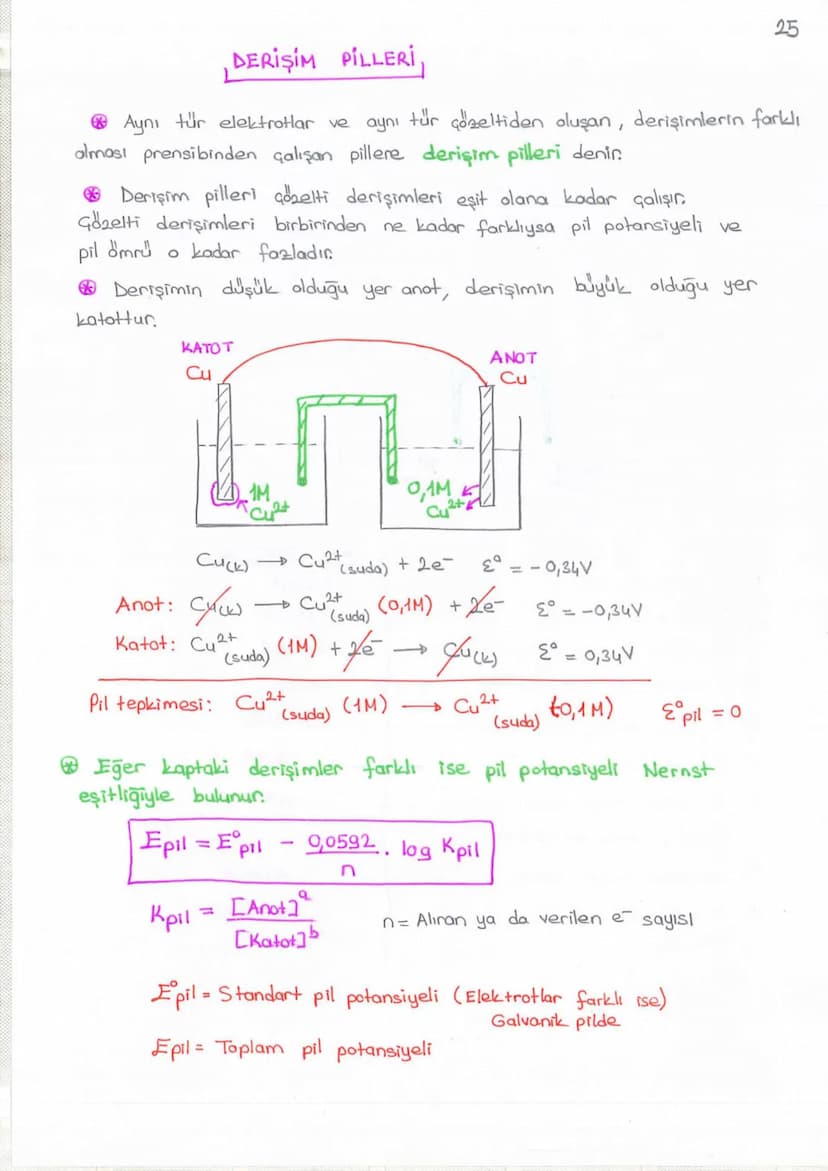 25
DERİŞİM PİLLERİ
Aynı tür elektrotlar ve aynı tür çözeltiden oluşan, derişimlerin farklı
olması prensibinden çalışan pillere derişim pilleri denir.
Derişim pilleri çözelti derişimleri eşit olana kadar çalışır.
Çözelti derişimleri birbirinden ne kadar farklıysa pil potansiyeli ve
pil ömrü o kadar fazladır.
Derişimin düşük olduğu yer anot, derişimin büyük olduğu yer
katottur.
KATOT
ANOT
Cu
Cu
1M
Cu²⁺
0,1M
Cu²⁺
Cu(k) → Cu²⁺(suda) + 2e⁻ ε° = -0,34V
Anot: Cu(k) → Cu²⁺(suda) (0,1M) + 2e⁻ ε° = -0,34V
Katot: Cu²⁺(suda) (1M) + 2e⁻ → Cu(k) ε° = 0,34V
Pil tepkimesi: Cu²⁺(suda) (1M) → Cu²⁺(suda) (0,1M) ε°pil = 0
Eğer kaptaki derişimler farklı ise pil potansiyeli Nernst
eşitliğiyle bulunur.
Epil = E°pil - 0,0592/n . log Kpil
Kpil = [Anot]ᵃ/[Katot]ᵇ n = Alınan ya da verilen e⁻ sayısı
E°pil = Standart pil potansiyeli (Elektrotlar farklı ise)
Galvanik pilde
Epil = Toplam pil potansiyeli